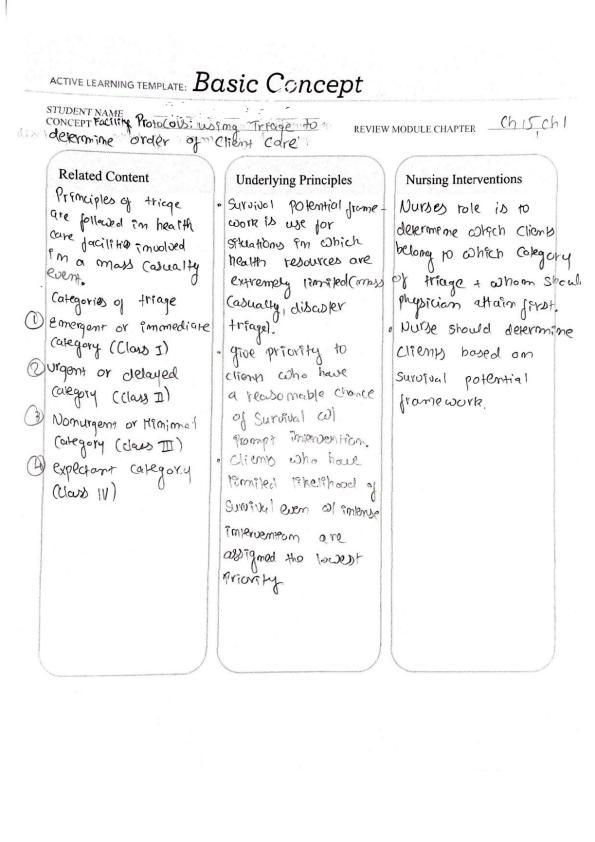 ACTIVE LEARNING TEMPLATE: Basic Concept
STUDENT NAME
CONCEPT Facility Protocols: using Triage to
determine order of Client Care
REVIEW MODULE CHAPTER Ch 15, Ch 1
Related Content
Principles of triage
are followed in health
care facilities involved
in a mass casualty
event.
Categories of triage
① Emergent or immediate
category (Class I)
② Urgent or delayed
category (Class II)
③ Nonurgent or Minimal
Category (class III)
④ Expectant category
(Class IV)
Underlying Principles
• Survival potential frame-
work is use for
situations in which
health resources are
extremely limited (mass
Casualty, disaster
triage).
• give priority to
clients who have
a reasonable chance
of Survival w/
prompt intervention.
• Clients who have
limited likelihood of
Survival even w/ intense
intervention are
assigned the lowest
Priority
Nursing Interventions
Nurses role is to
determine which Clients
belong to which Category
of triage + whom should
physician attain first.
• Nurse should determine
Clients based on
Survival potential
framework.